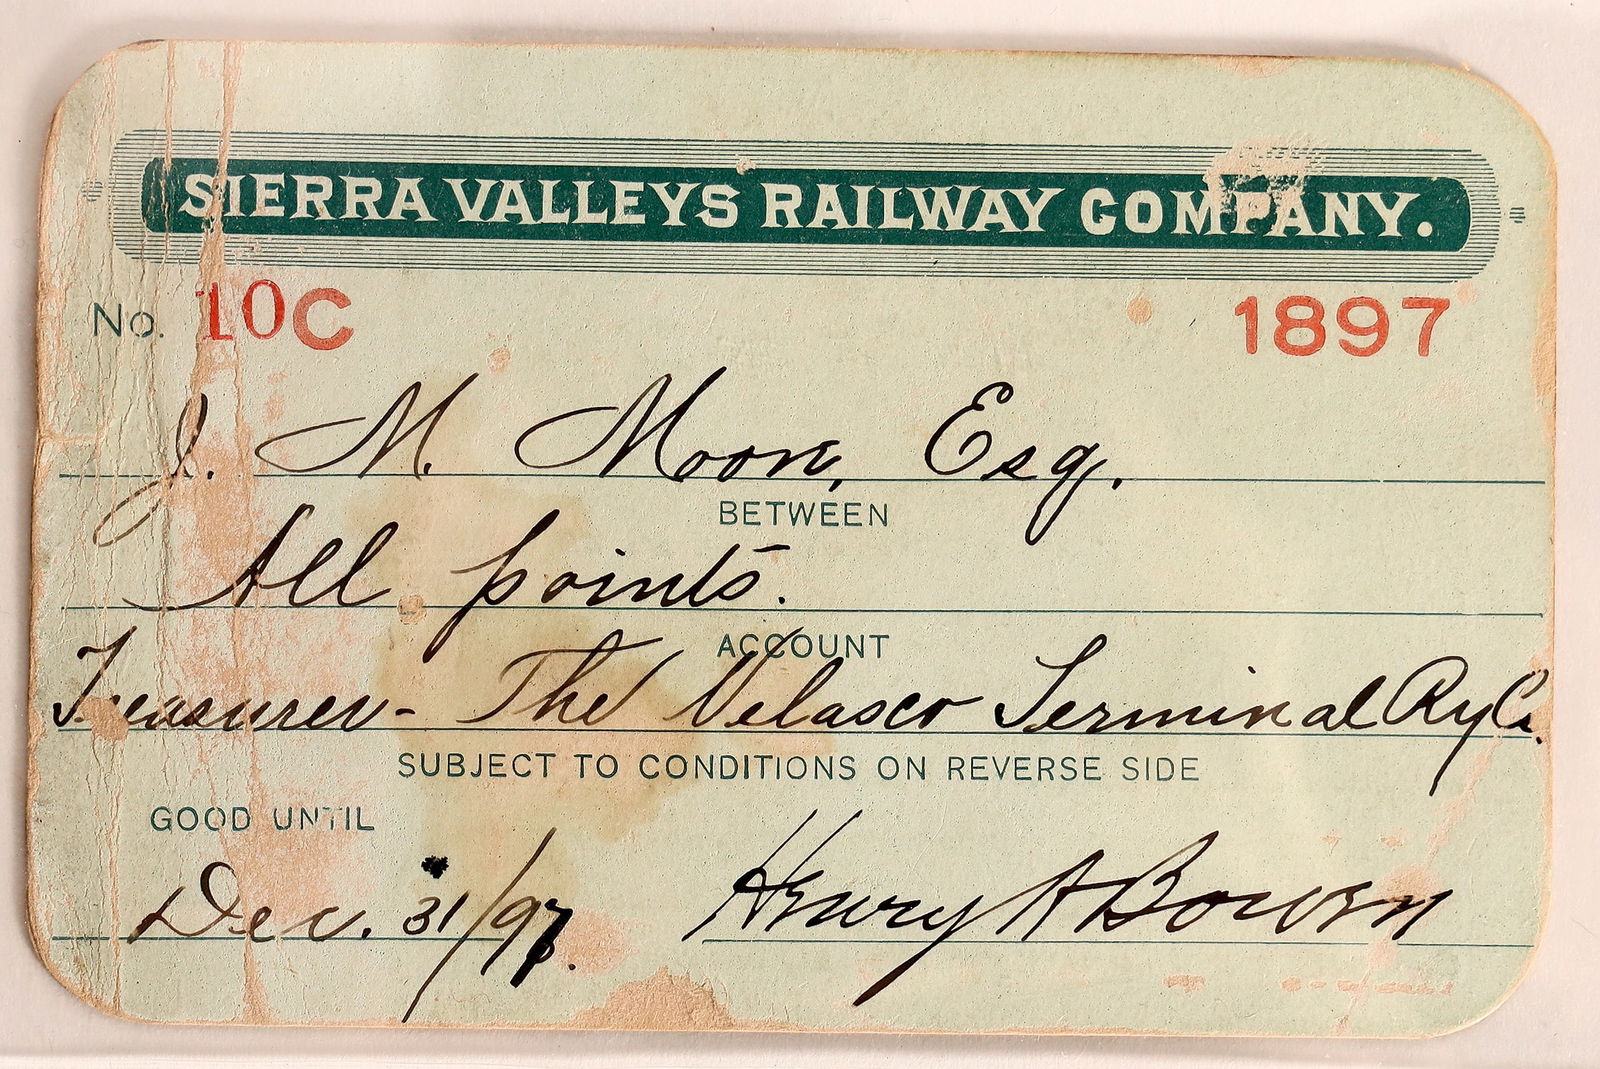 SIERRA VALLEYS RAILWAY COMPANY.
No. 10C 1897
J. M. Moon, Esq.
BETWEEN
All points.
ACCOUNT
Treasurer- The Velasco Terminal Ry Co.
SUBJECT TO CONDITIONS ON REVERSE SIDE
GOOD UNTIL
Dec. 31/97. Henry A Bowen